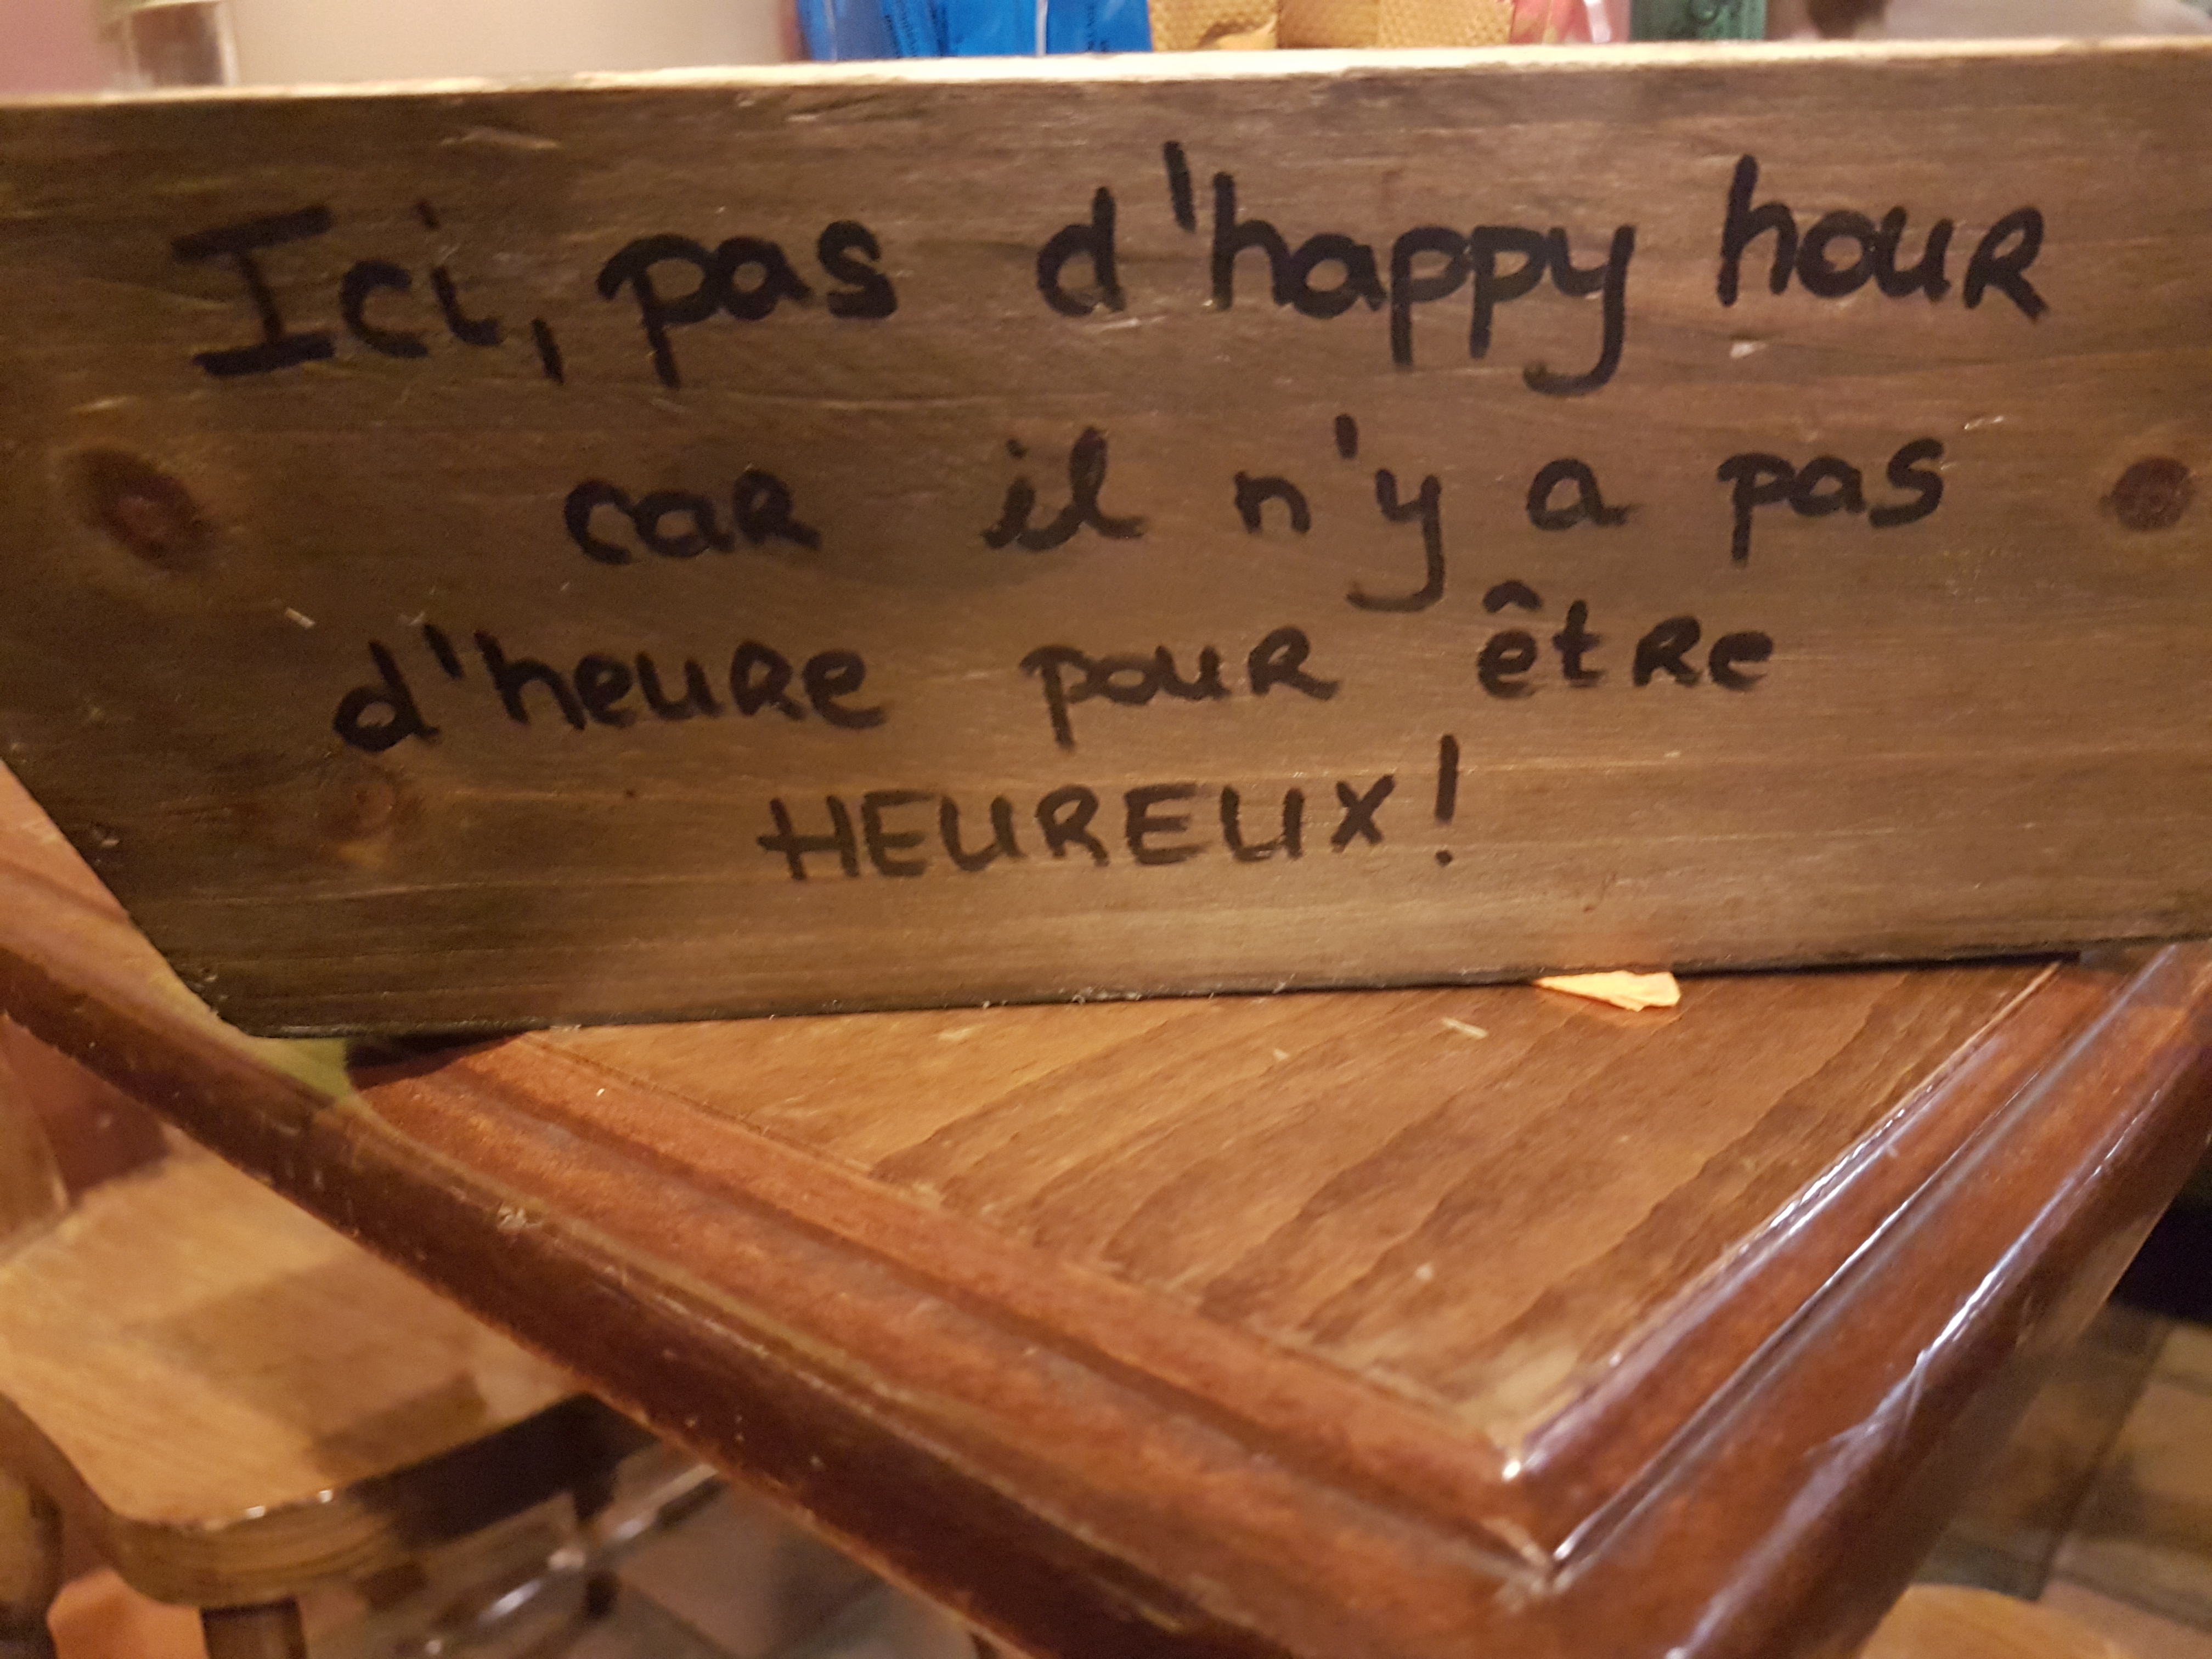 Ici, pas d'happy hour
car il n'y a pas
d'heure pour être
HEUREUX!